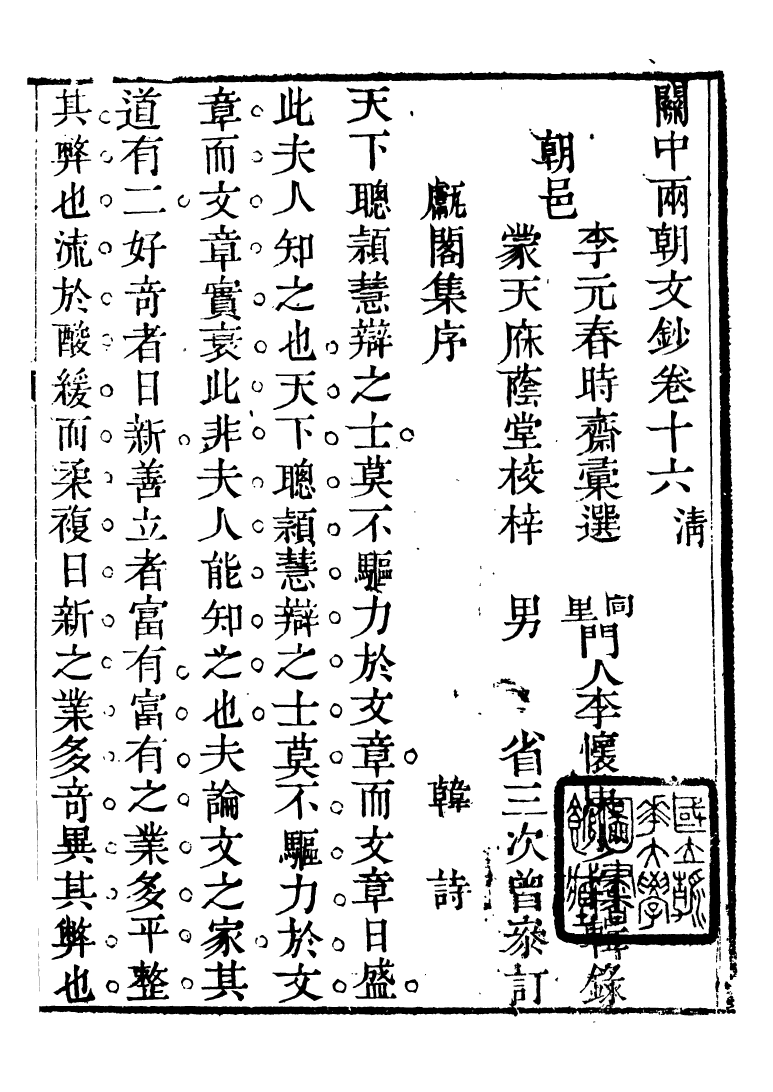 關中兩朝文鈔卷十六 清
朝邑
李元春時齋彙選 同里門人李懷輯錄
蒙天庥蔭堂校梓 男 省三次曾叅訂
甗閣集序 韓詩
天下聰頴慧辯之士莫不驅力於文章而文章日盛
此夫人知之也天下聰頴慧辯之士莫不驅力於文
章而文章實衰此非夫人能知之也夫論文之家其
道有二好竒者日新善立者富有富有之業多平整
其弊也流於酸緩而柔複日新之業多竒異其弊也
國立清
華大學
圖書
館藏